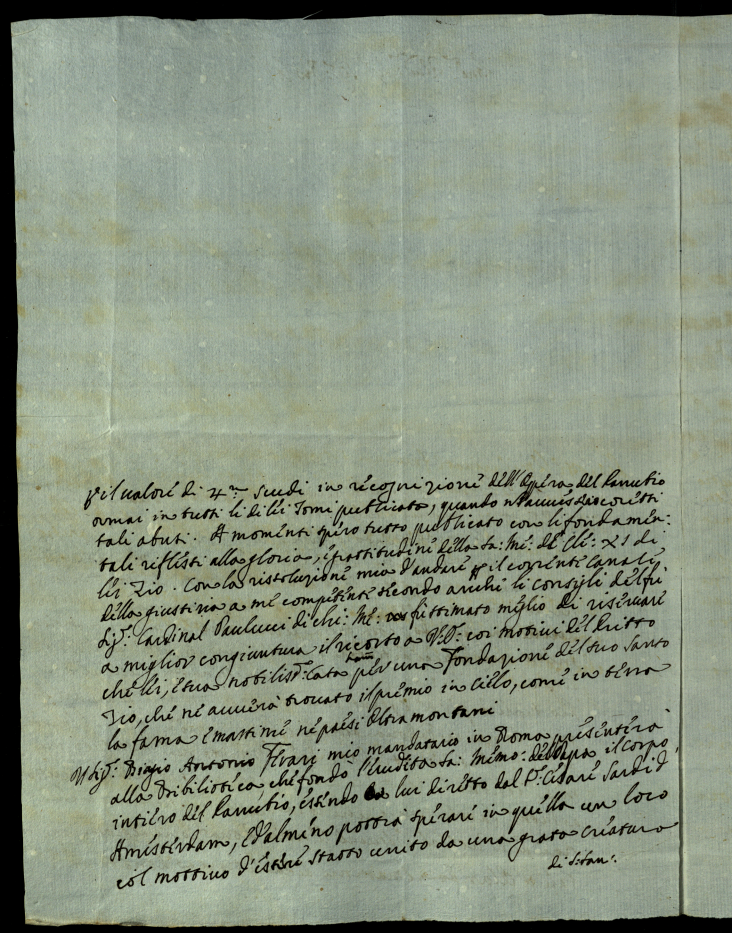 p il valore di 4m Scudi in recognizione dell'Opera del Danubio
ormai in tutti li di lei Tomi publicata, quando
tali abuti. A momenti spero tutto publicato con li fondamen:
tali riflessi alla gloria, e grattitudine della Sa: Me: de Cle: XI di
lei Zio. Con la rissoluzione mia d'andare p il corrente Canale
della giustizia a me competente secondo anche li consigli del fu
Sigr: Cardinal Paulucci di chi: Me: fu stimato meglio di riservare
a miglior congiuntura il ricorso a coi motivi del Dritto
che lei, e sua nobilissa: Casa han per una Fondazione del suo Santo
Zio, che ne averà trovato il premio in cielo, come in terra
la fama e massime ne paesi Oltramontani
Il Sigr: Biagio Antonio mio mandatario in Roma presenterà
alla Bibliotèca, che fondò l'erudita Sa: Memo: del Papa il corpo
intiero del Danubio, essendo a lui diretto dal Sr. Cesare Sardi d'
Amsterdam, e d'almeno potrà sperare in quella un loco
col mottivo d'essere statto unito da una grata creatura
di S: San: